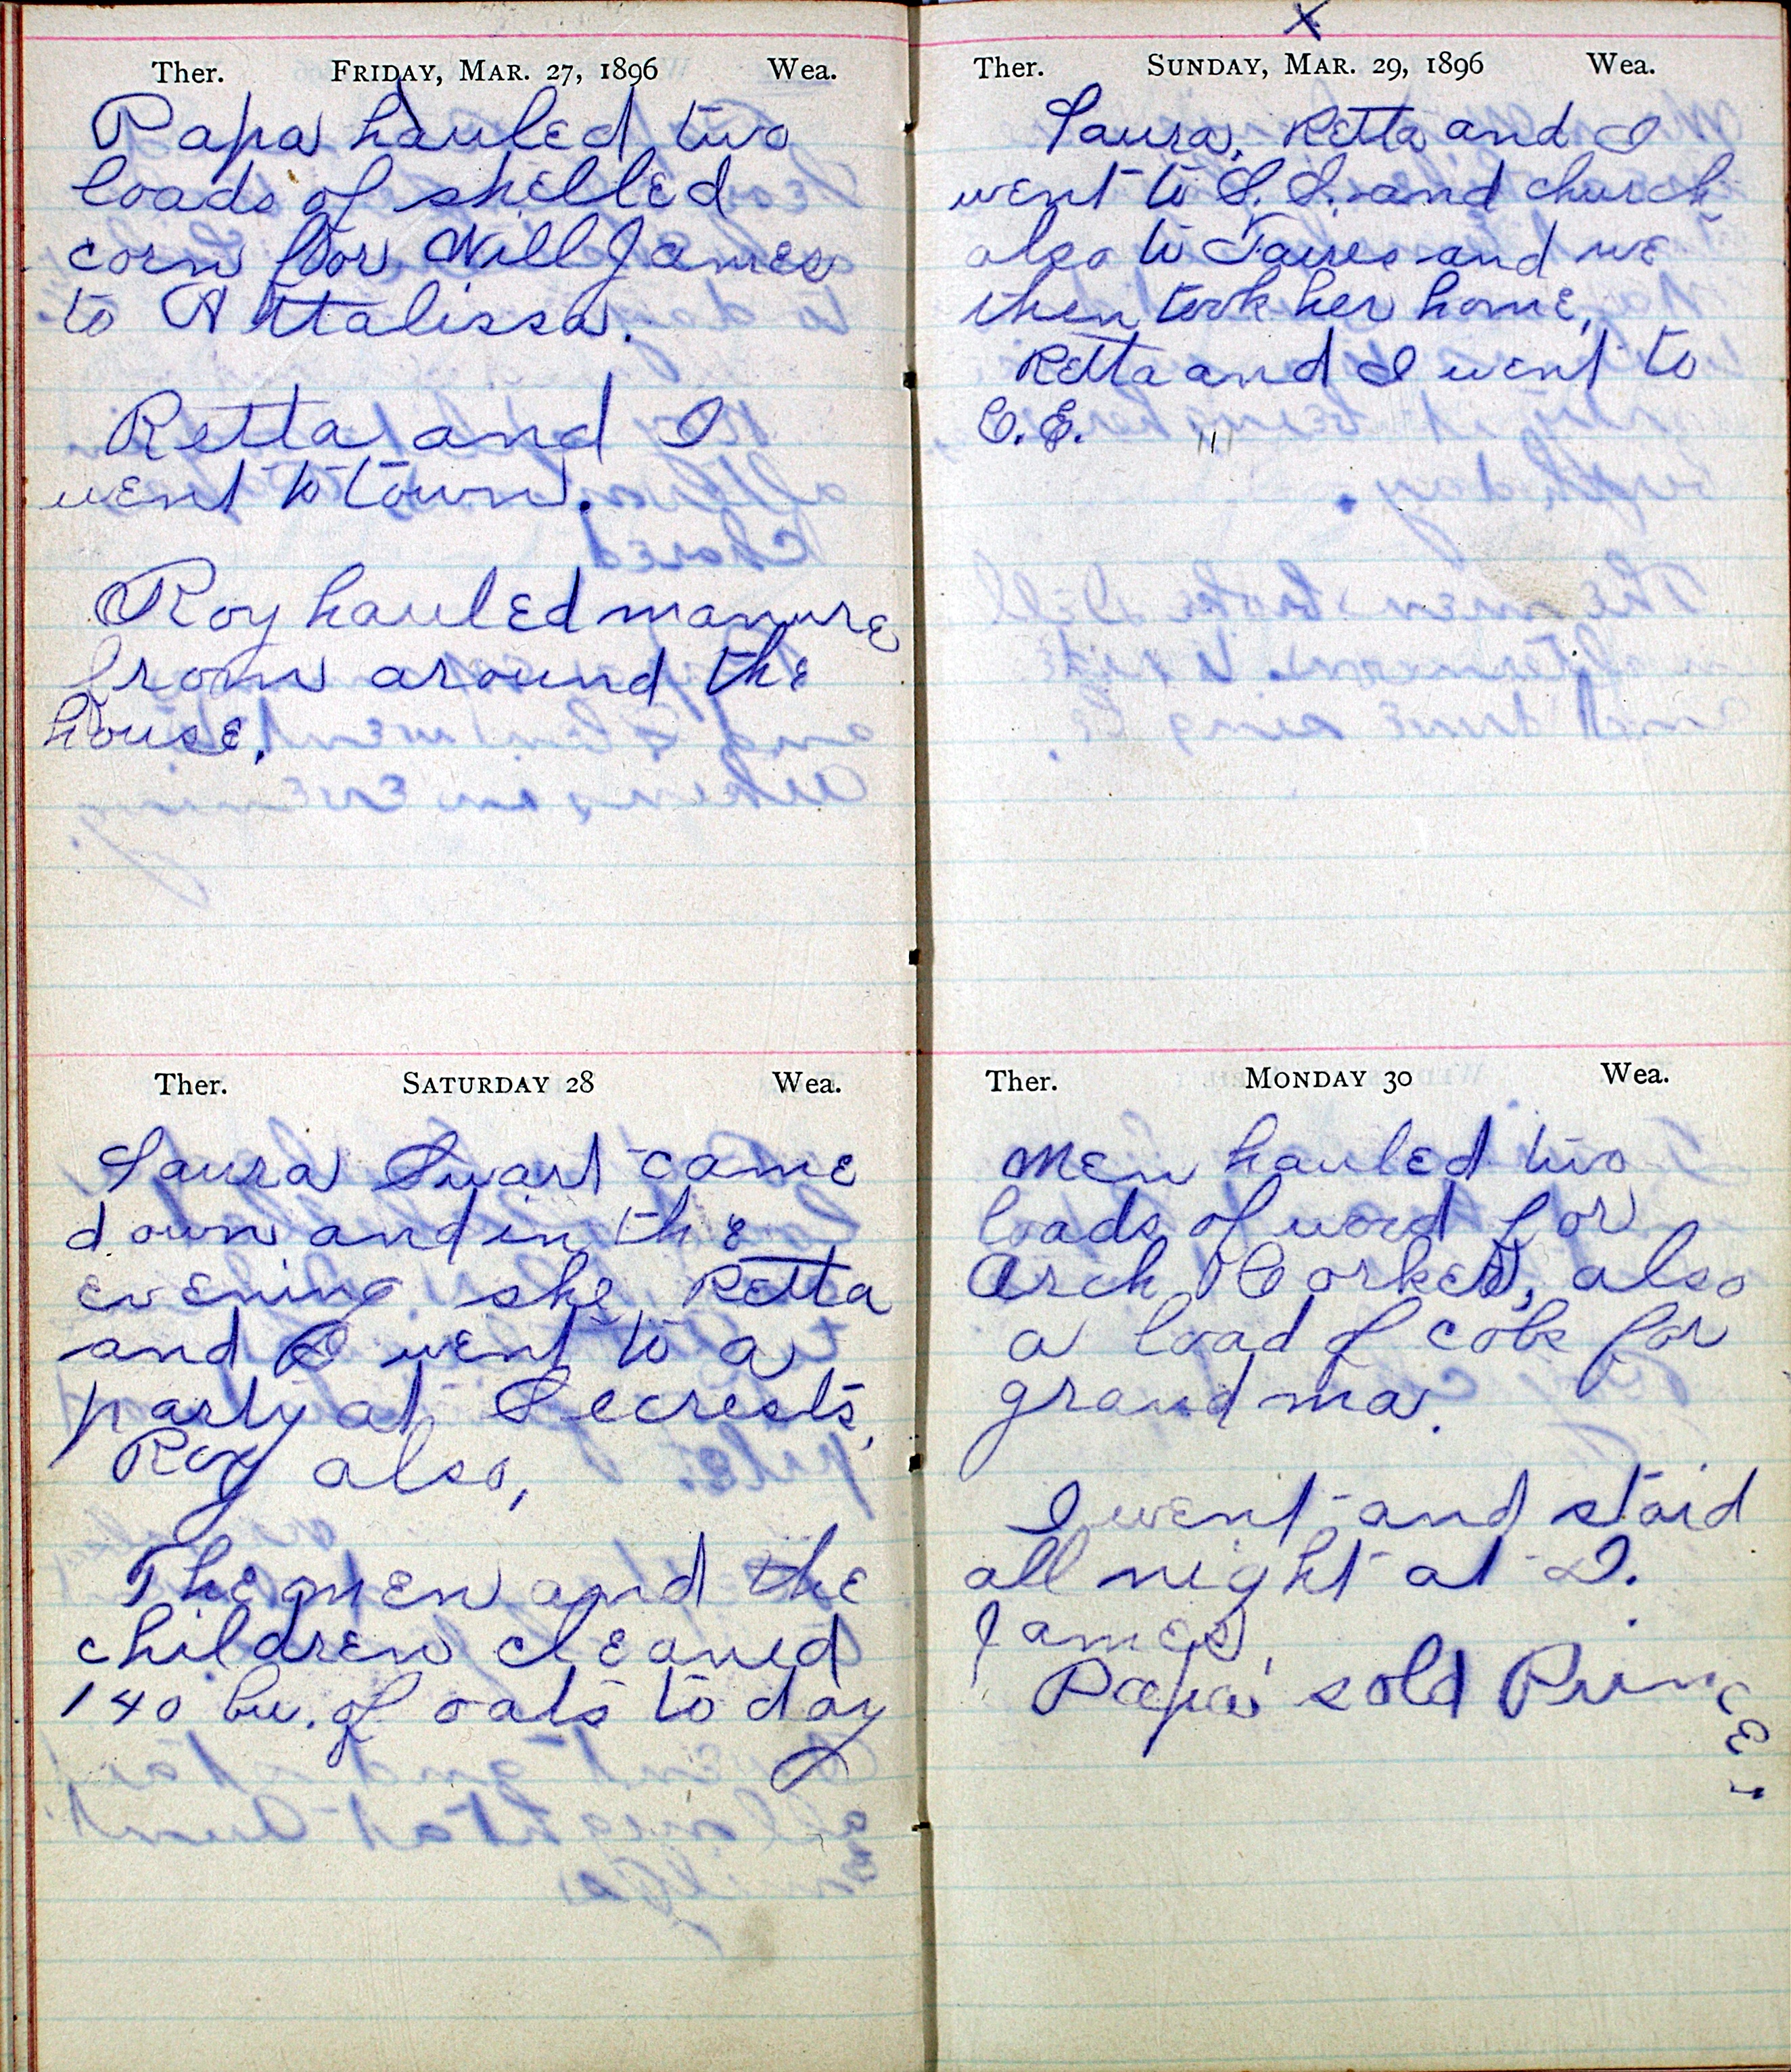 Ther. FRIDAY, MAR. 27, 1896 Wea.
Papa hauled two
loads of shelled
corn for Will James
to Attalissa.
Retta and I
went to town.
Roy hauled manure
from around the
house.
Ther. SATURDAY 28 Wea.
Laura Swart came
down and in the
evening she, Retta
and I went to a
party at Secrests,
Roy also,
The men and the
children cleaned
140 bu. of oats to day
X
Ther. SUNDAY, MAR. 29, 1896 Wea.
Laura, Retta and I
went to S. S. and church
also to and we
then took her home,
Retta and I went to
C. E.
Ther. MONDAY 30 Wea.
Men hauled two
loads of wood for
Arch, also
a load of cobs for
grandma.
I went and staid
all night at D.
James,
Papa sold Prince,